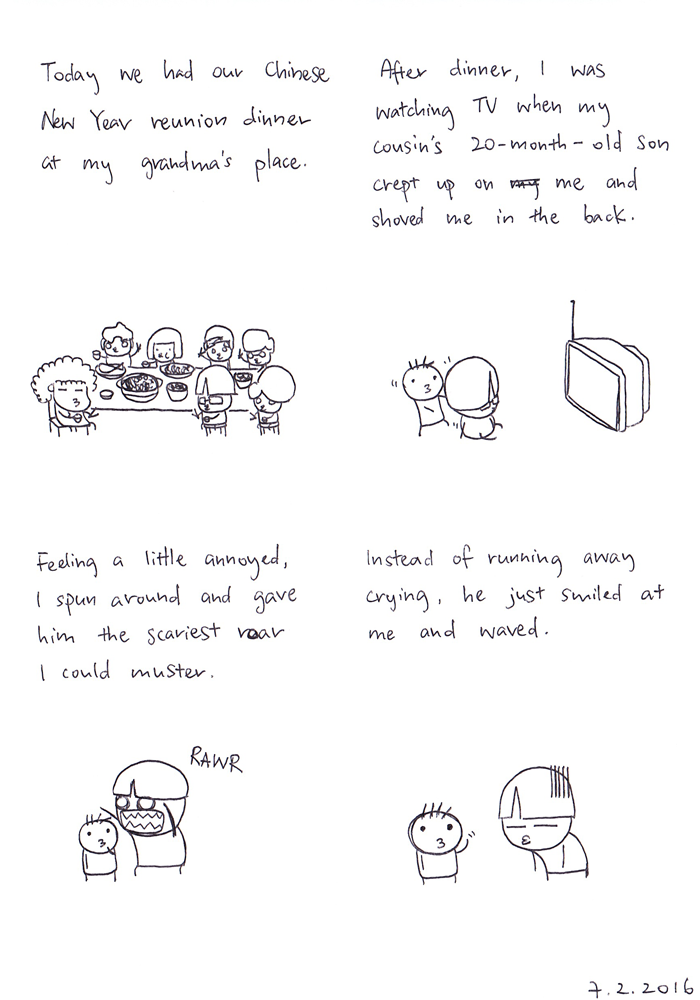 Today we had our Chinese
New Year reunion dinner
at my grandma's place.
After dinner, I was
watching TV when my
cousin's 20-month-old son
crept up on my me and
shoved me in the back.
Feeling a little annoyed,
I spun around and gave
him the scariest roar
I could muster.
RAWR
Instead of running away
crying, he just smiled at
me and waved.
7.2.2016